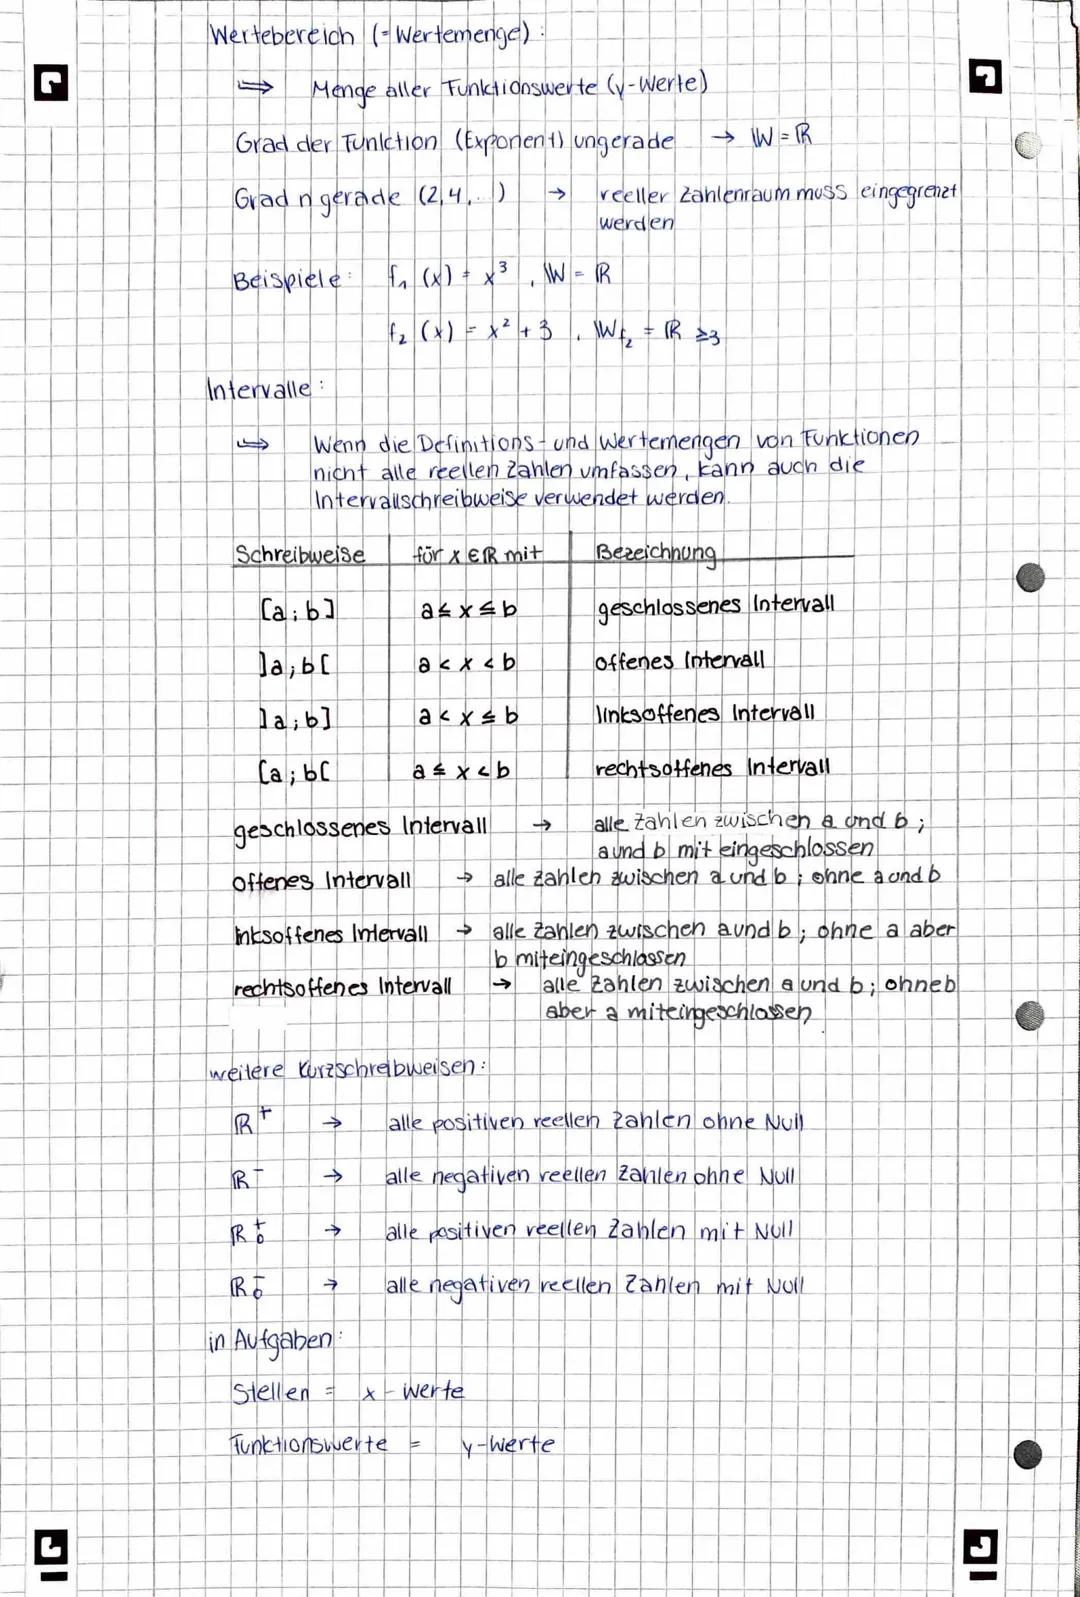 Wertebereich (=Wertemenge):
⟹ Menge aller Funktionswerte (y-Werte)
Grad der Funktion (Exponent) ungerade → W = ℝ
Grad n gerade (2,4,...) → reeller Zahlenraum muss eingegrenzt
werden
Beispiele: f₁ (x) = x³ , W = ℝ
f₂ (x) = x² + 3 , W_f₂ = ℝ ≥3
Intervalle:
⟹ Wenn die Definitions- und Wertemengen von Funktionen
nicht alle reellen Zahlen umfassen, kann auch die
Intervallschreibweise verwendet werden.
Schreibweise für x ∈ ℝ mit Bezeichnung
[a;b] a ≤ x ≤ b geschlossenes Intervall
]a;b[ a < x < b offenes Intervall
]a;b] a < x ≤ b linksoffenes Intervall
[a;b[ a ≤ x < b rechtsoffenes Intervall
geschlossenes Intervall → alle Zahlen zwischen a und b;
a und b mit eingeschlossen
offenes Intervall → alle Zahlen zwischen a und b; ohne a und b
linksoffenes Intervall → alle Zahlen zwischen a und b; ohne a aber
b miteingeschlossen
rechtsoffenes Intervall → alle Zahlen zwischen a und b; ohne b
aber a miteingeschlossen
weitere Kurzschreibweisen:
ℝ⁺ → alle positiven reellen Zahlen ohne Null
ℝ⁻ → alle negativen reellen Zahlen ohne Null
ℝ₀⁺ → alle positiven reellen Zahlen mit Null
ℝ₀⁻ → alle negativen reellen Zahlen mit Null
in Aufgaben:
Stellen = x-Werte
Funktionswerte = y-Werte